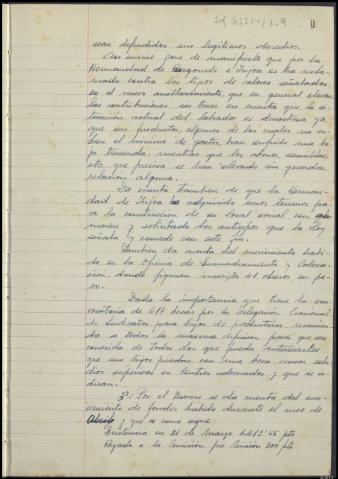 sean defendidos sus legítimos derechos.
Así mismo pone de manifiesto que por la
Hermandad de Bergondo e Irijoa se ha recla-
mado contra los tipos de valores señalados
en el nuevo amillaramiento, que en general elevan
las contribuciones, sin tener en cuenta que la si-
tuación actual del labrador es desastrosa ya
que sus productos, algunos de los cuales no cu-
bren el mínimo de gastos, han sufrido una ba-
ja tremenda, mientras que los abonos, semillas,
etc. que precisa se han elevado sin guardar
relación alguna.
Da cuenta tambien de que la Herman-
dad de Irijoa ha adquirido unos terrenos pa-
ra la construcción de su local social con
y solicitado los anticipos que la Ley
señala y concede con este fin.
Tambien da cuenta del movimiento habi-
do en la Oficina de Encuadramiento y Coloca-
ción, donde figuran inscritos obreros en pa-
ro.
Dada la importancia que tiene la con-
vocatoria de 617 becas por la Delegación Nacional
de Sindicatos para hijos de productores, recomien-
da a todos la máxima difusión, para que sea
conocida de todos los que pueda interesarles
que sus hijos puedan con una beca cursar estu-
dios superiores en Centros adecuados y que se in-
dican.
3º: Por el Tesorero se da cuenta del mo-
vimiento de fondos habido durante el mes de
Abril y que es como sigue:
Existencia en 31 de Marzo 6.613'45 pts
Pagado a la Comisión pro Misión 200 pts